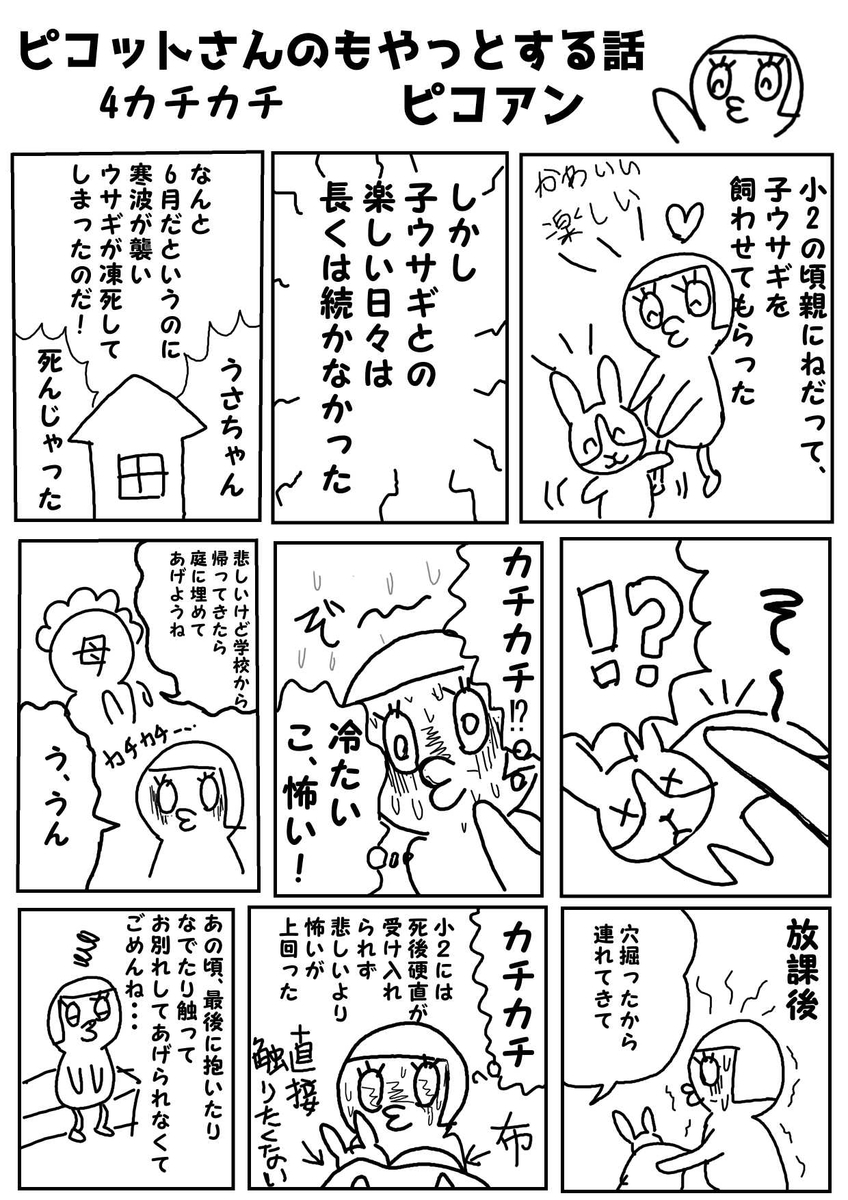 ピコットさんのもやっとする話
4カチカチ
ピコアン
小2の頃親にねだって、
子ウサギを
飼わせてもらった
かわいい
楽しい
しかし
子ウサギとの
楽しい日々は
長くは続かなかった
なんと
6月だというのに
寒波が襲い
ウサギが凍死して
しまったのだ!
うさちゃん
死んじゃった
!?
そ〜
カチカチ!?
ぞ〜
冷たい
こ、怖い!
悲しいけど学校から
帰ってきたら
庭に埋めて
あげようね
母
カチカチ…
う、うん
放課後
穴掘ったから
連れてきて
カチカチ
小2には
死後硬直が
受け入れ
られず
悲しいより
怖いが
上回った
直接
触りたくない
布
あの頃、最後に抱いたり
なでたり触って
お別れしてあげられなくて
ごめんね・・・